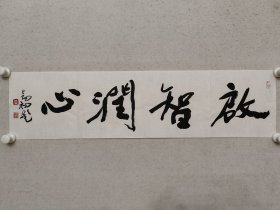 啟智潤心